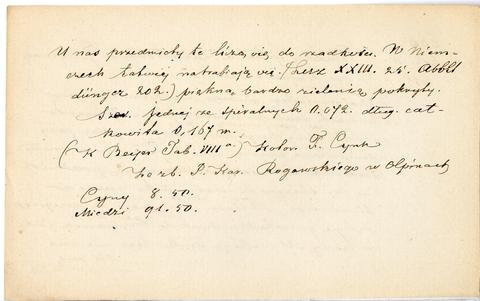 U nas przedmioty te liczą się do rzadkości. W Niem-
czech łatwiej natrafiają się. XXIII. 25.
202.) piękną bardzo zielenią pokryty.
Szer. jednej ze spiralnych 0.072. dług. cał-
kowita 0,167 m.
(K Beijer Tab. VIIIa) Kolor. F. Cynk
ze zb. P. Kar. Rogawskiego w Ołpinach
Cyny 8.50.
Miedzi 91.50.